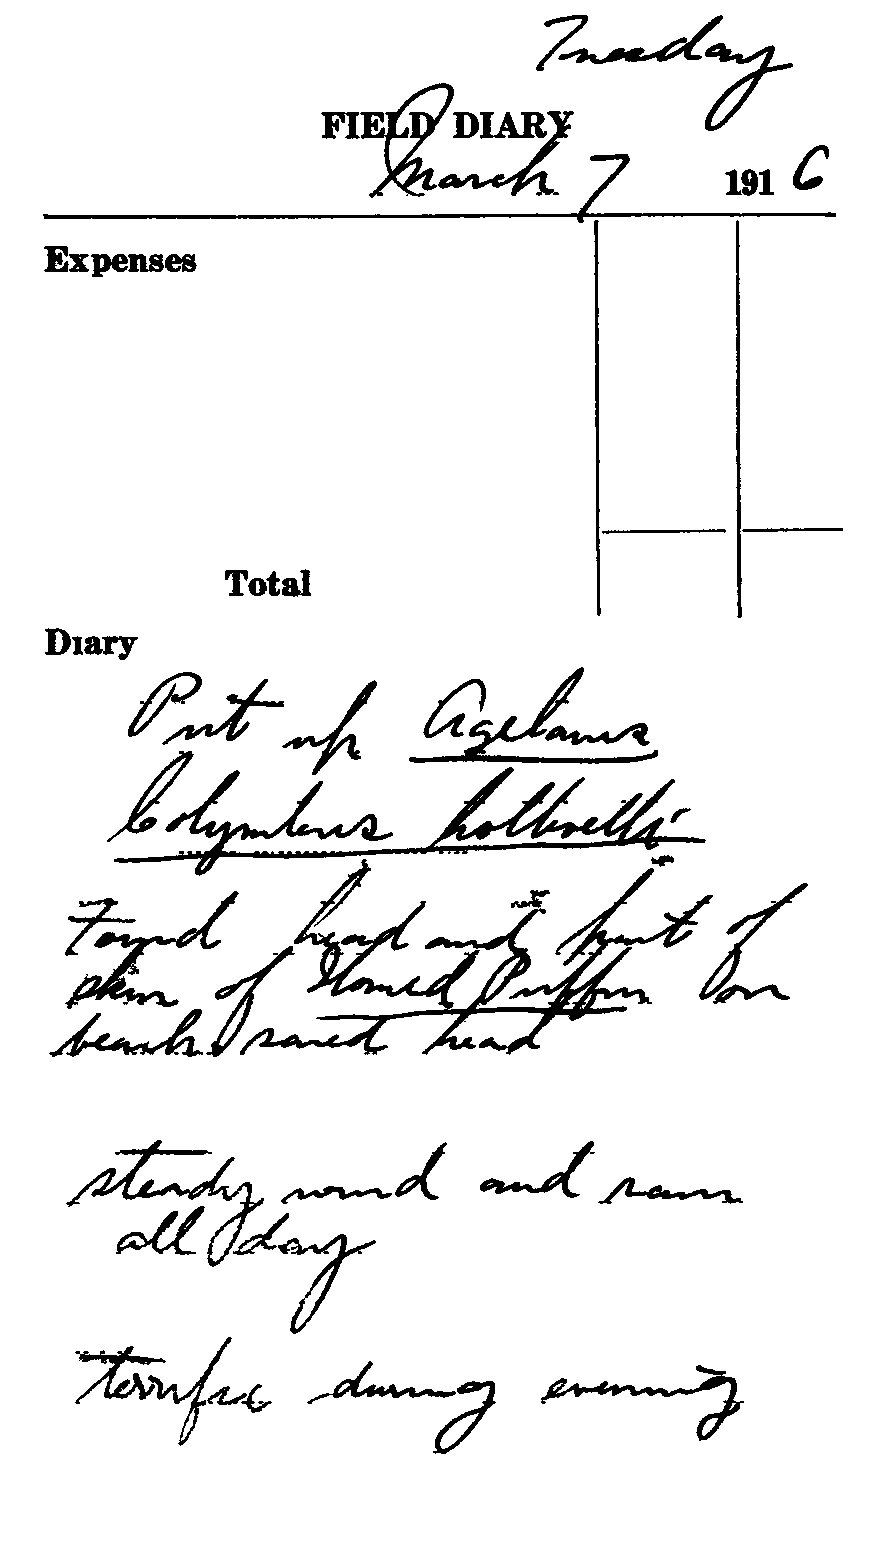 Tuesday
FIELD DIARY
March 7 1916
Expenses
Total
Diary
Put up Agelaius
Colymbus holboelli
Found head and part of
skin of Horned Puffin on
beach, saved head
steady wind and rain
all day
terrific during evening